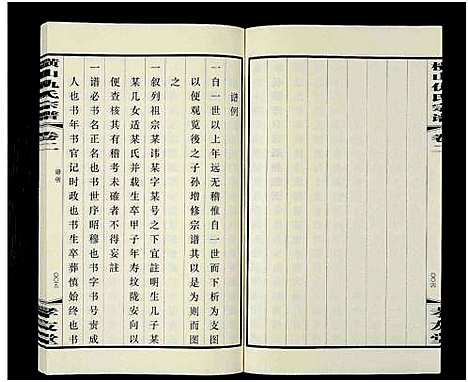 横山仇氏宗谱
卷二
谱例
一自一世以上年远无稽惟自一世而下析为支图
以便观览後之子孙增修宗谱其以次相继而图
之
一叙列祖宗某讳某字某号之下宜註明生几子某
某几女适某氏并载生卒甲子年寿坟陇安向以
便查核其有稽考未確者不得妄註
一谱必书名正名也书世序昭穆也书字书号责成
人也书年书官记时政也书生卒葬慎始终也书
横山仇氏宗谱
卷二
谱例
孝友堂
孝友堂